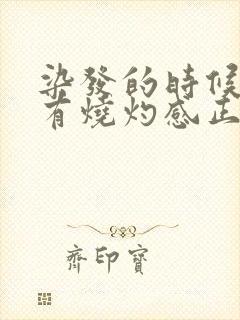 染發的時候
有燒灼感正
齊印寶